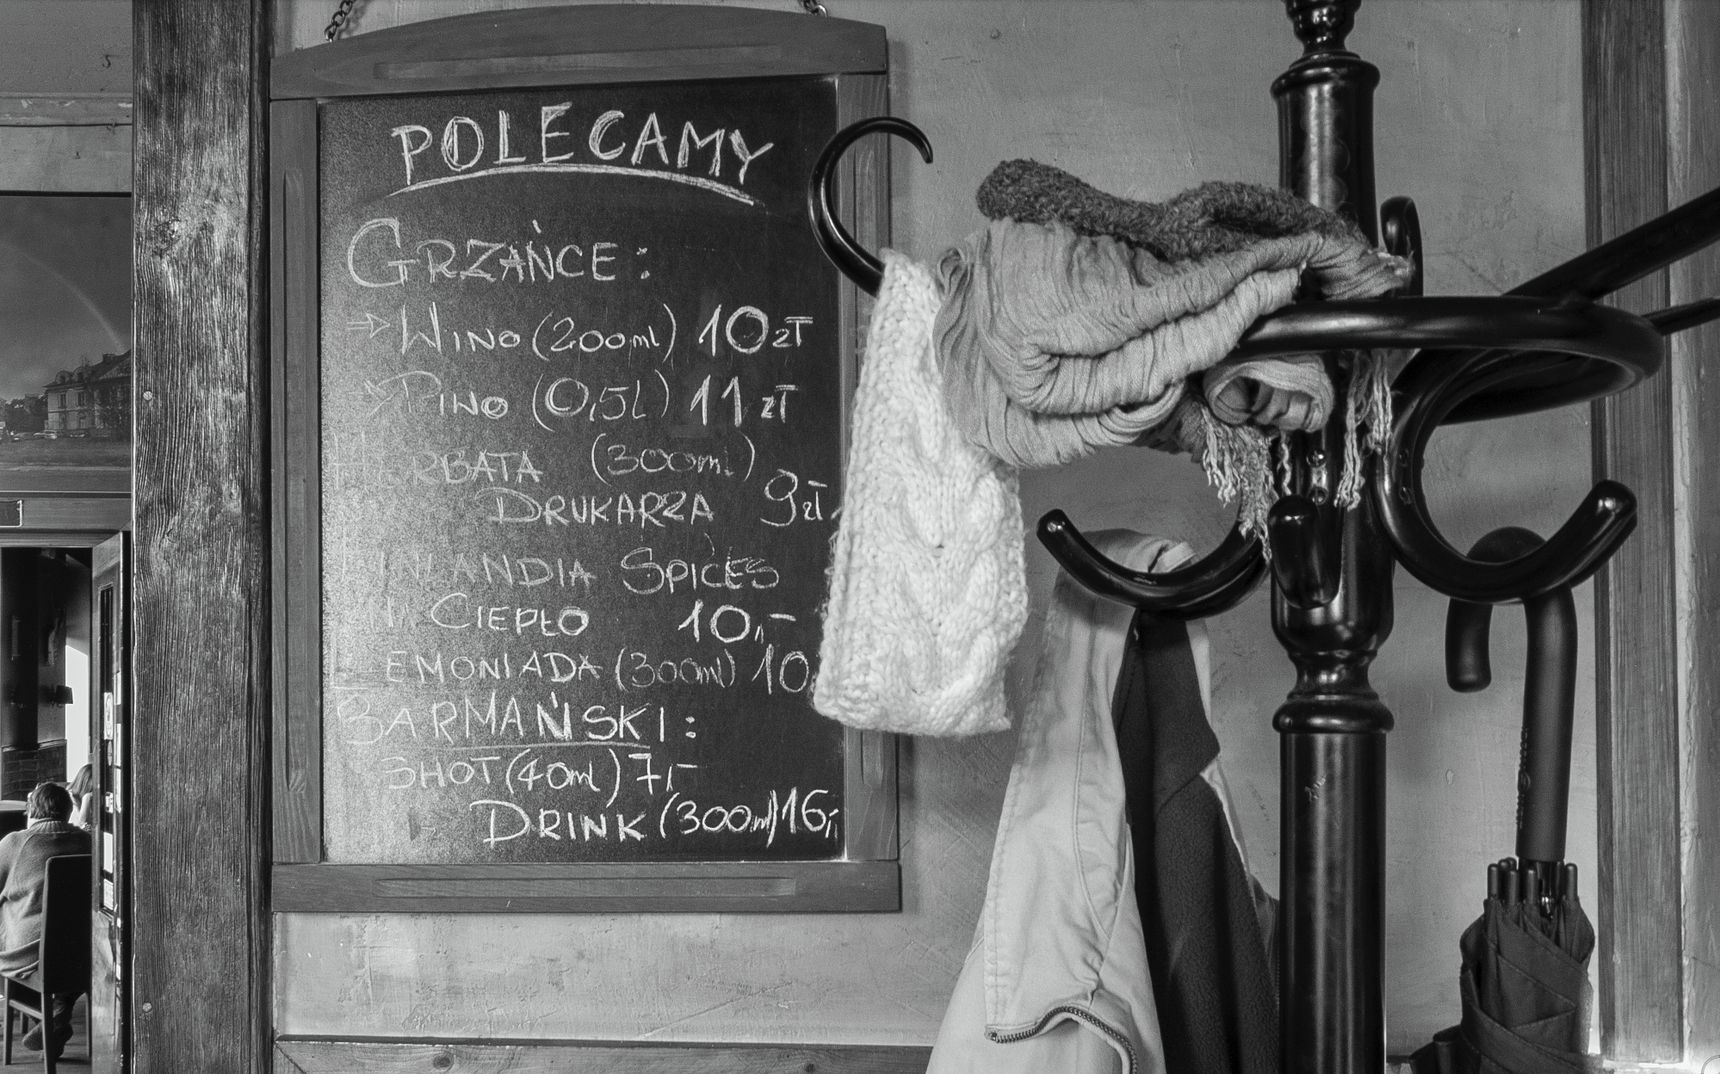 POLECAMY
GRZAŃCE:
→ WINO (200ml) 10 zł
→ PIWO (0,5L) 11 zł
HERBATA (300ml)
DRUKARZA 9 zł
FINLANDIA SPICES
CIEPŁO 10,-
LEMONIADA (300ml) 10
BARMAŃSKI:
SHOT (40ml) 7,-
DRINK (300ml) 16,-